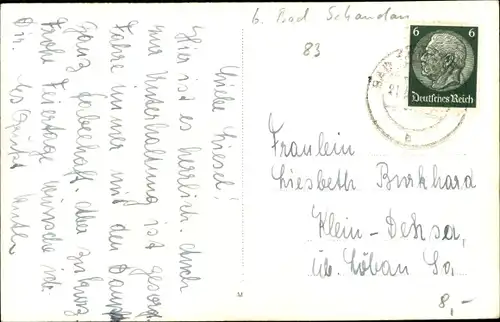 b. Bad Schandau
83
6 6
Deutsches Reich
Liebe Liesel!
Hier ist es herrlich. Auch
zur Unterhaltung ist gesorgt.
Fahre immer mit den Dampf
ganz fabelhaft. Aber
Frohe Feiertage wünsche ich
Dir. Es grüßt
Fraulein
Liesbeth Burkhard
Klein-Dehsa,
üb. Löbau Sa
8,-
M